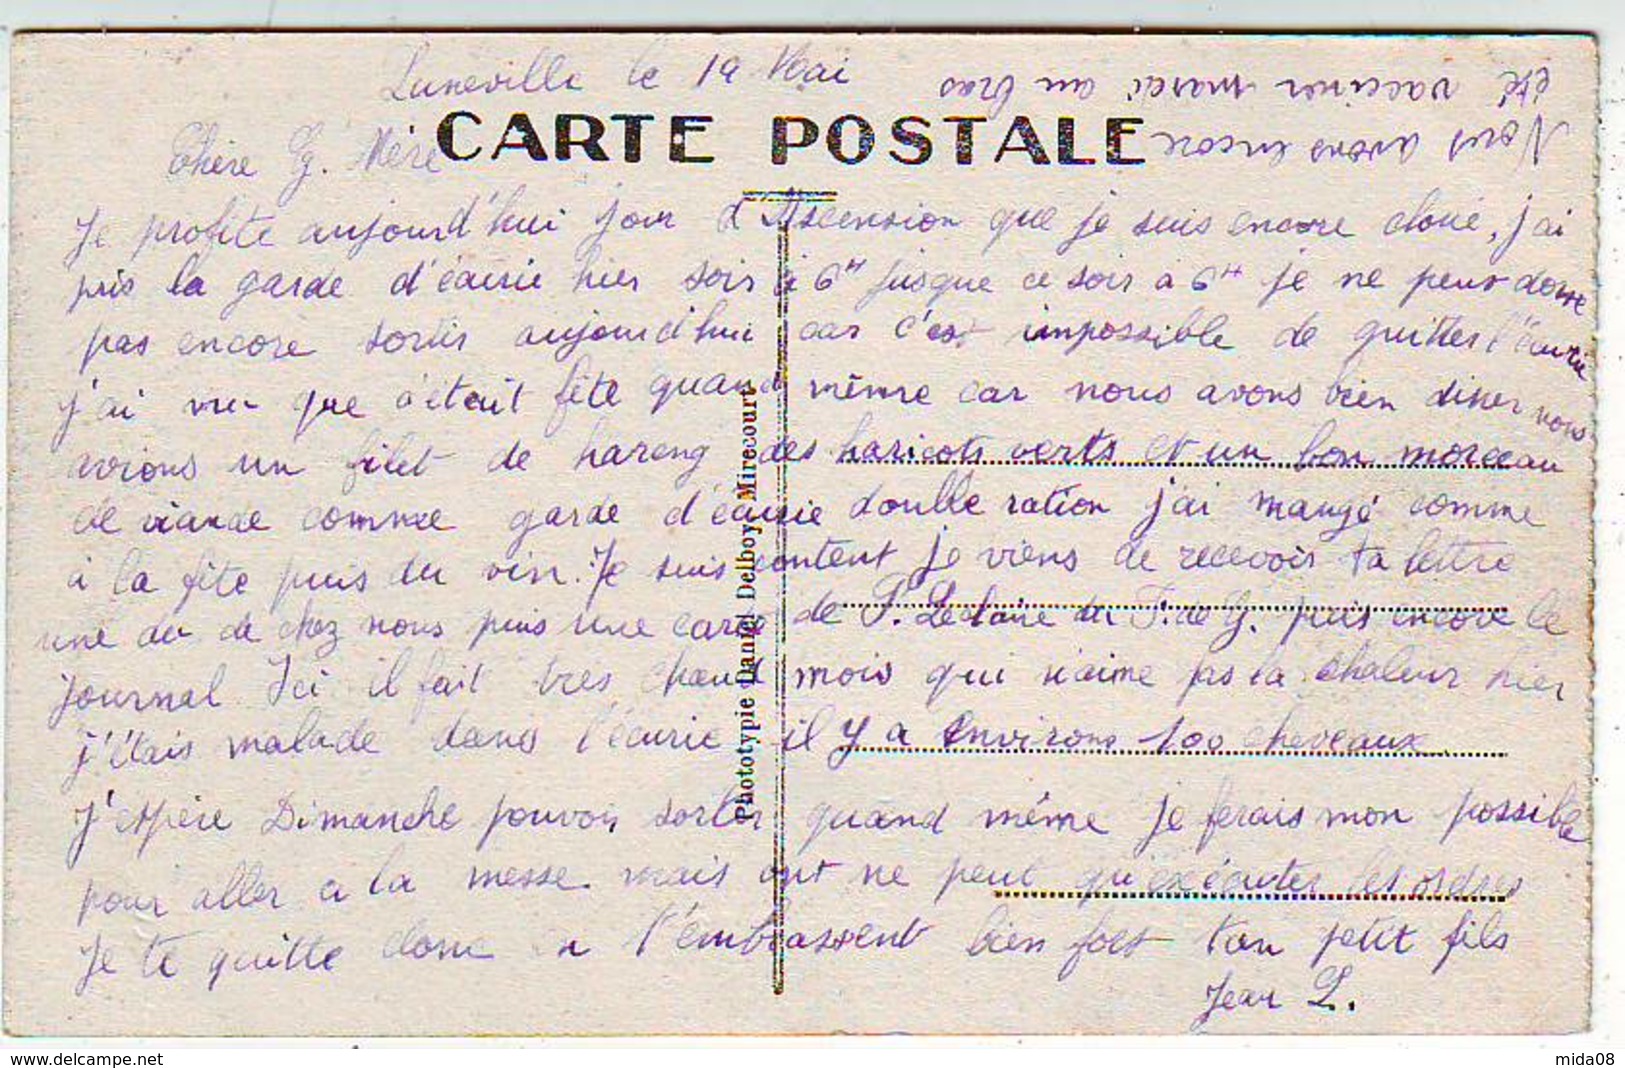 Luneville le 19 Mai
CARTE POSTALE
Chère G. Mère
Je profite aujourd'hui jour d'Ascension que je suis encore cloué, j'ai
pris la garde d'écurie hier soir à 6H jusque ce soir à 6H je ne peux donc
pas encore sortir aujourd'hui car c'est impossible de quitter l'écurie
j'ai vu que c'etait fête quand même car nous avons bien diner nous
avions un filet de hareng des haricots verts et un bon morceau
de viande comme garde d'écurie double ration j'ai mangé comme
à la fête puis du vin. Je suis content je viens de recevoir ta lettre
une de de chez nous puis une carte de P. Leclaire du F. de G. puis encore le
journal. Ici il fait tres chaud mois qui n'aime pas la chaleur hier
j'étais malade dans l'écurie il y a environs 100 cheveaux
J'espère Dimanche pouvoir sortir quand même je ferais mon possible
pour aller a la messe. mais ont ne peut qu'exécuter les ordres
Je te quitte donc en t'embrassent bien fort ton petit fils
Jean L.
Nous avons encore
été vacciner mardi au bras
Phototypie Daniel Delboy, Mirecourt
www.delcampe.net
mida08